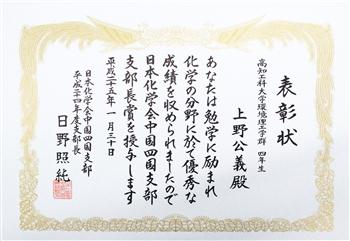 表彰状
高知工科大学環境理工学群 四年生
上野公義殿
あなたは勉学に励まれ
化学の分野に於て優秀な
成績を収められましたので
日本化学会中国四国支部
支部長賞を授与します
平成二十五年一月三十日
日本化学会中国四国支部
平成二十四年度支部長
日野照純